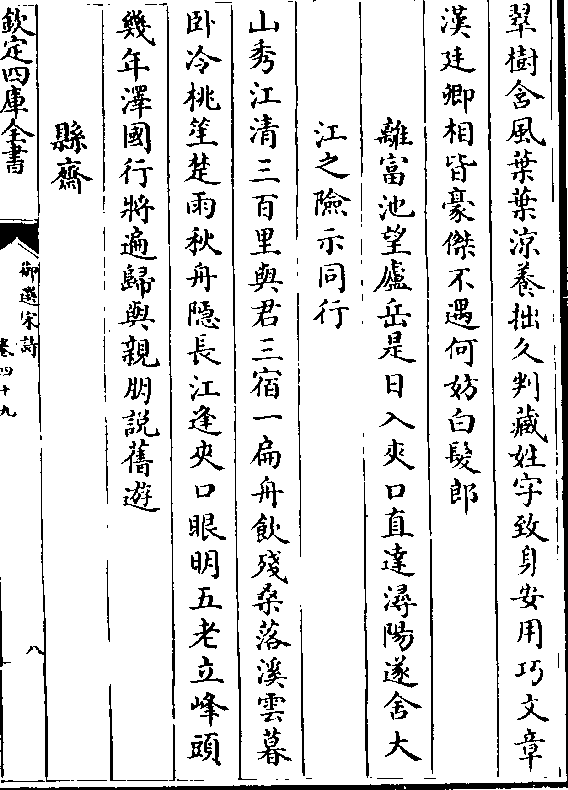 翠樹含風葉葉涼養拙久判藏姓字致身安用巧文章
漢廷卿相皆豪傑不遇何妨白髮郎
離富池望廬岳是日入夾口直達潯陽遂舍大
江之險示同行
山秀江清三百里與君三宿一扁舟飲殘桑落溪雲暮
卧冷桃笙楚雨秋舟隱長江逢夾口眼明五老立峰頭
幾年澤國行將遍歸與親朋説舊遊
縣齋
欽定四庫全書
御選宋詩
卷四十九
八